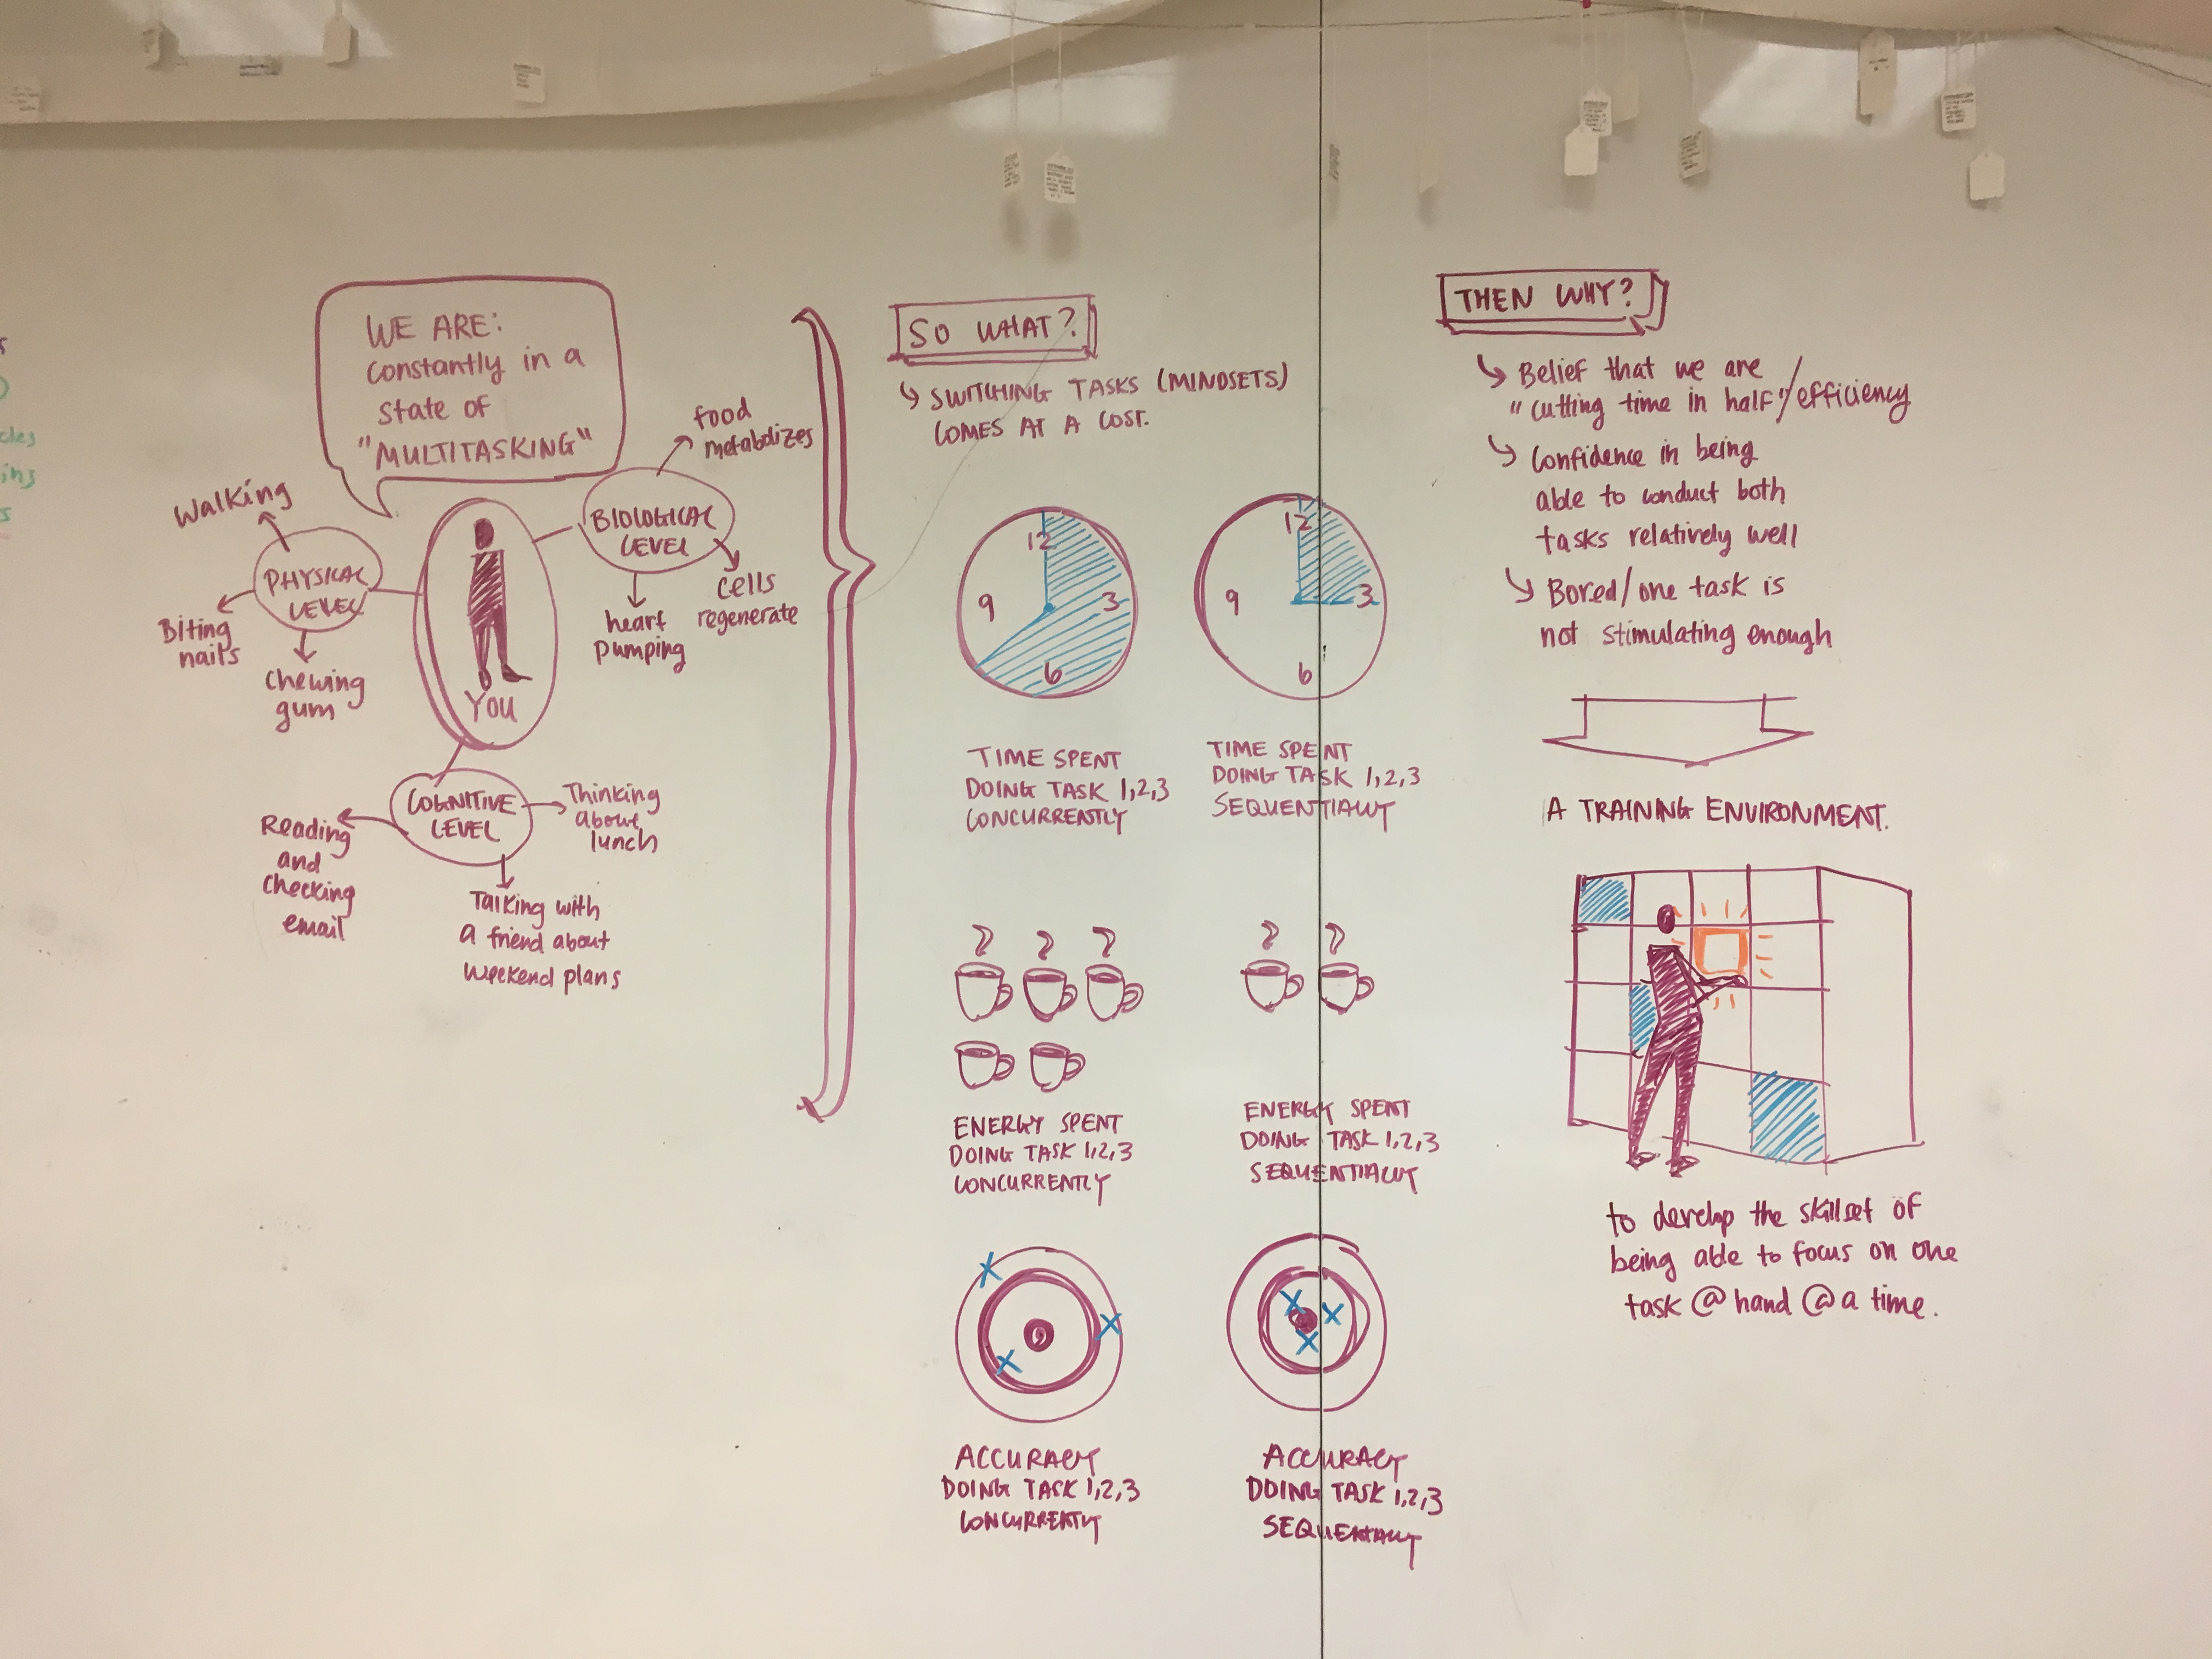 WE ARE:
constantly in a
state of
"MULTITASKING"
food
metabolizes
BIOLOGICAL
LEVEL
cells
regenerate
heart
pumping
Walking
PHYSICAL
LEVEL
Biting
nails
chewing
gum
YOU
COGNITIVE
LEVEL
Thinking
about
lunch
Reading
and
checking
email
Talking with
a friend about
weekend plans
SO WHAT?
SWITCHING TASKS (MINDSETS)
COMES AT A COST.
12
3
6
9
TIME SPENT
DOING TASK 1,2,3
CONCURRENTLY
12
3
6
9
TIME SPENT
DOING TASK 1,2,3
SEQUENTIALLY
ENERGY SPENT
DOING TASK 1,2,3
CONCURRENTLY
ENERGY SPENT
DOING TASK 1,2,3
SEQUENTIALLY
X
X
X
ACCURACY
DOING TASK 1,2,3
CONCURRENTLY
X
X
X
ACCURACY
DOING TASK 1,2,3
SEQUENTIALLY
THEN WHY?
Belief that we are
"cutting time in half"/efficiency
Confidence in being
able to conduct both
tasks relatively well
Bored/one task is
not stimulating enough
A TRAINING ENVIRONMENT.
to develop the skillset of
being able to focus on one
task @ hand @ a time.